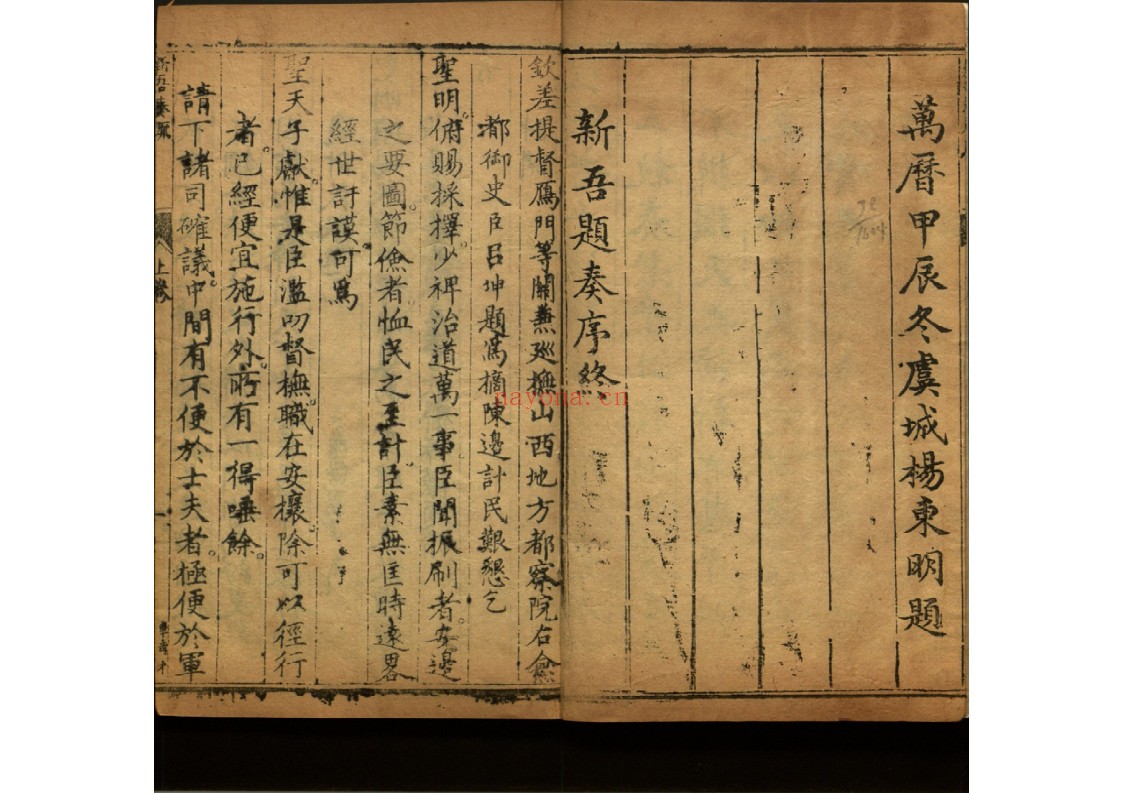 萬曆甲辰冬虞城楊東明題
新吾題奏序終
欽差提督鴈門等關兼廵撫山西地方都察院右僉
都御史臣呂坤題爲摘陳邊計民艱懇乞
聖明俯賜採擇少裨治道萬一事臣聞振刷者安邊
之要圖節儉者恤民之至計臣素無匡時遠畧
經世訏謨可爲
聖天子獻惟是臣濫叨督撫職在安攘除可以徑行
者已經便宜施行外所有一得唾餘
請下諸司確議中間有不便於士夫者極便於軍
上卷
nayona.cn